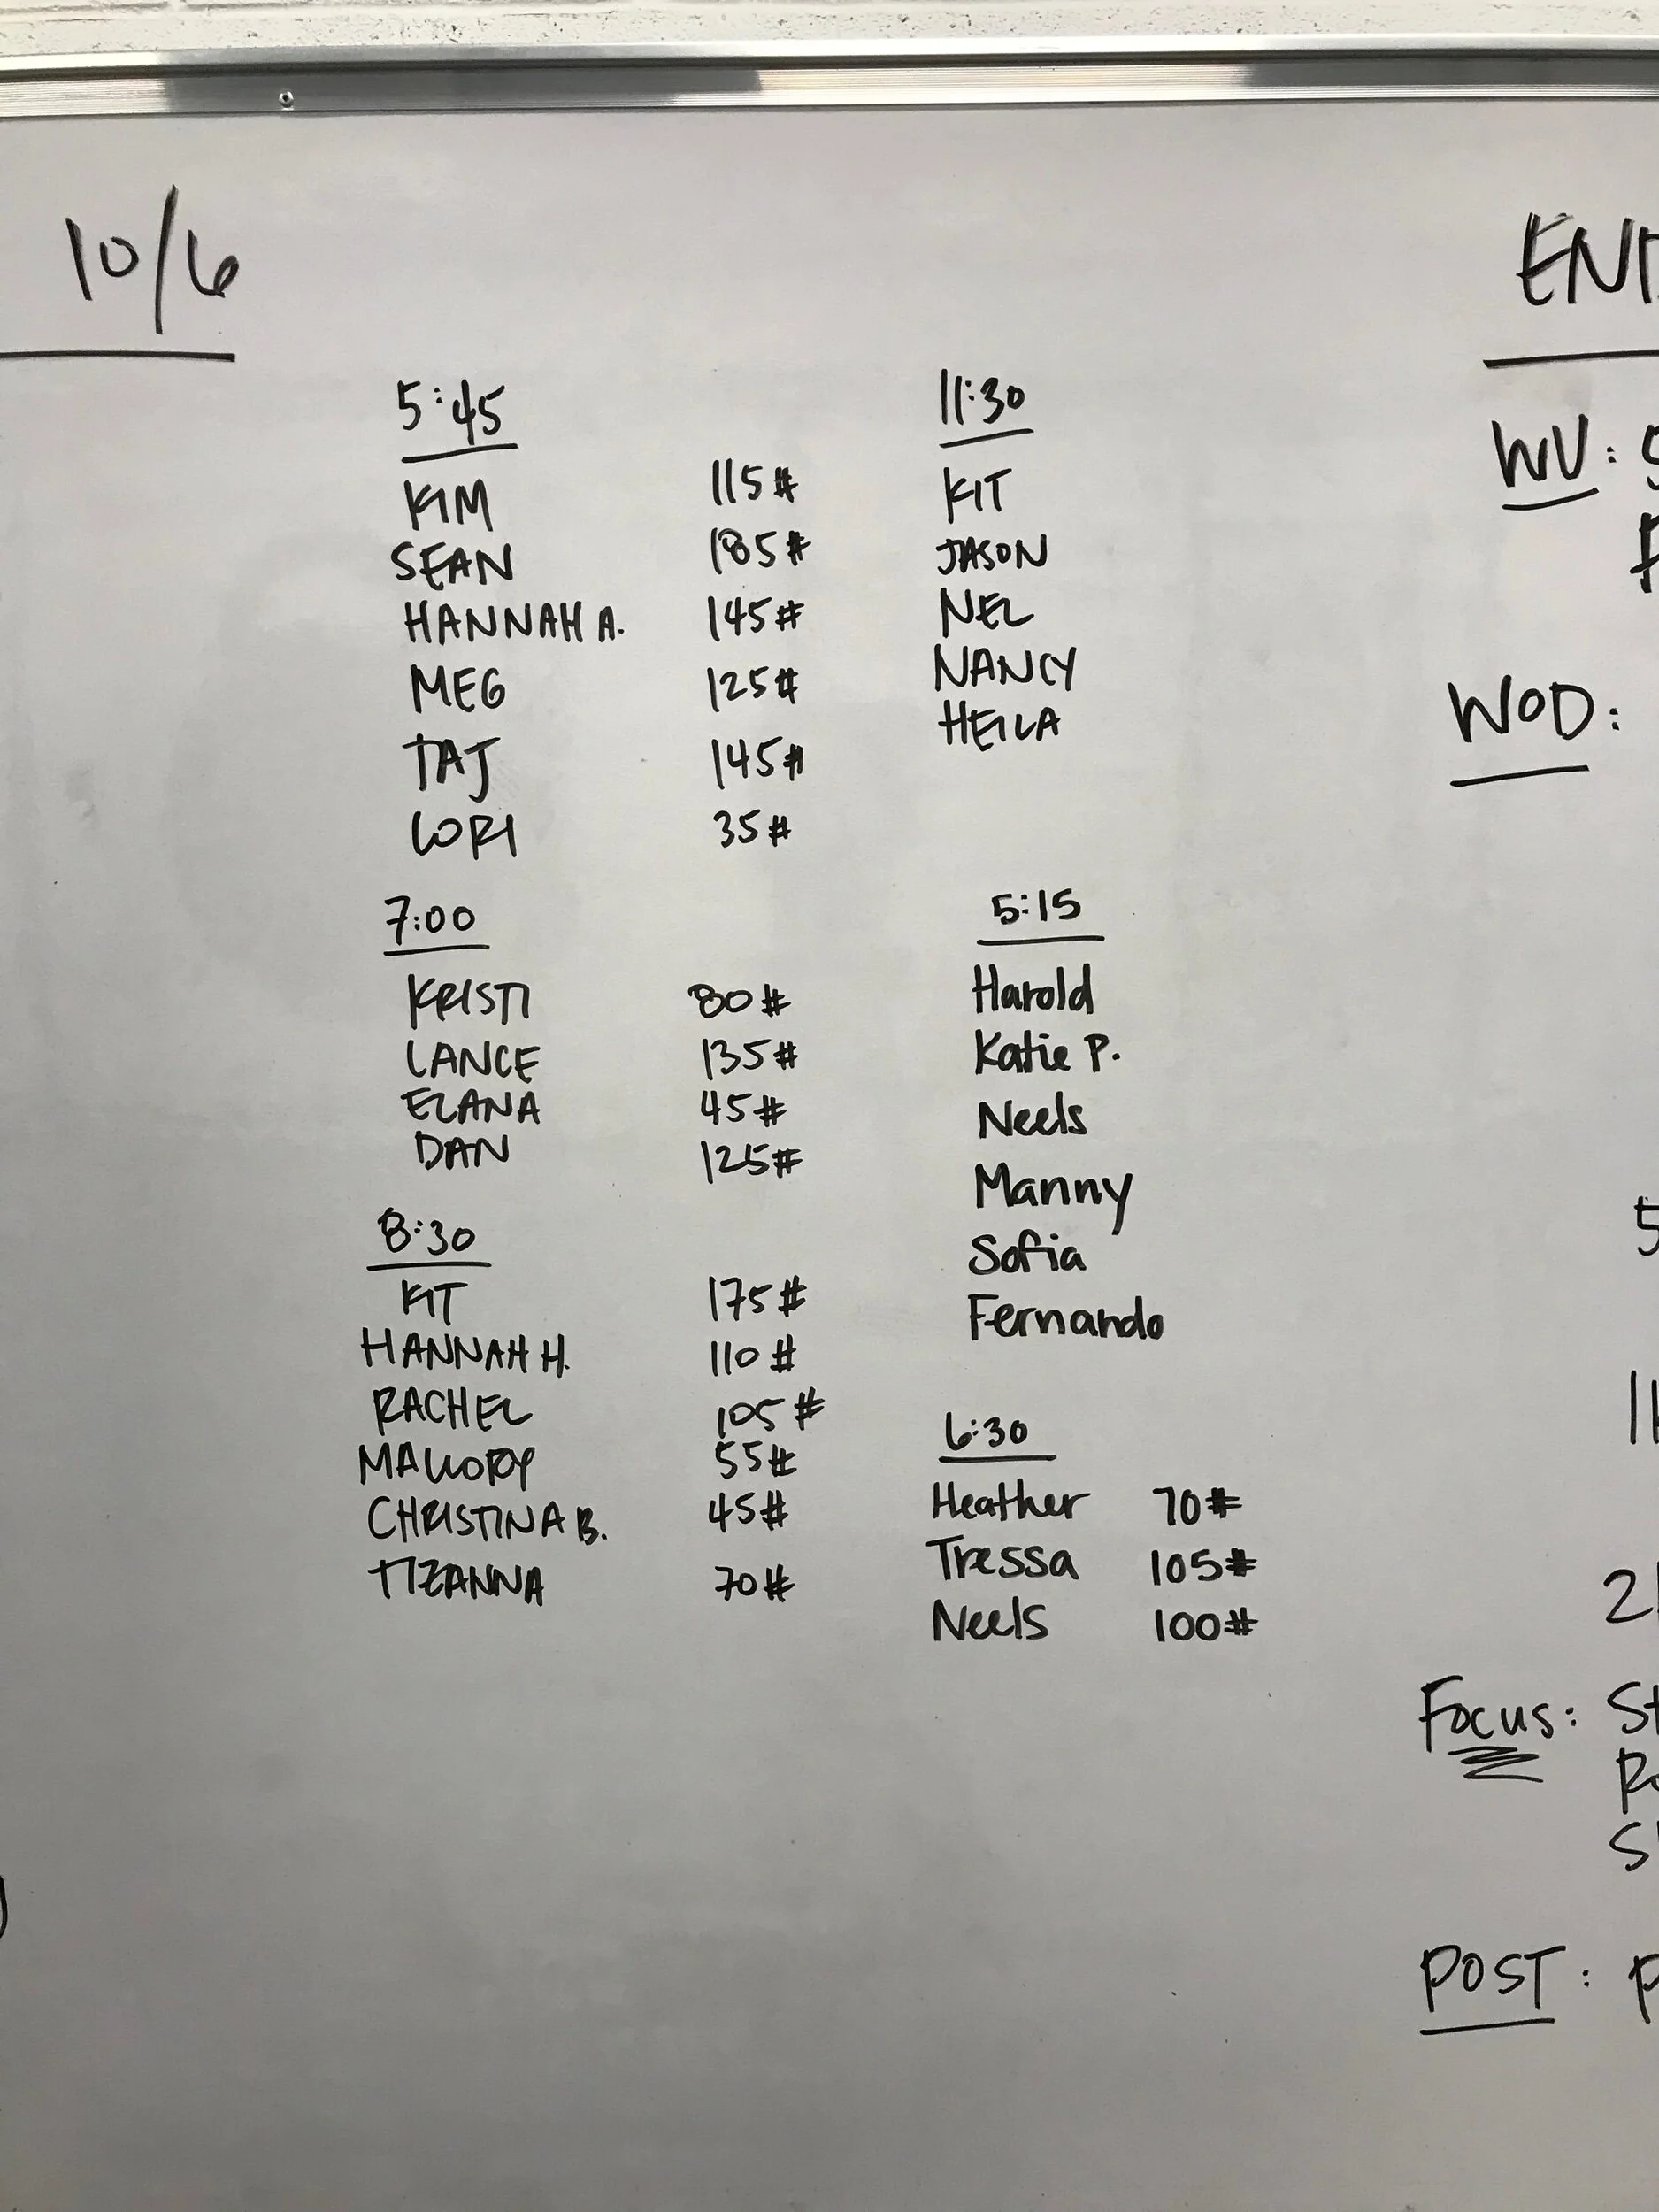 10/6
5:45
KIM 115#
SEAN 185#
HANNAH A. 145#
MEG 125#
TAJ 145#
LORI 35#
7:00
KRISTI 80#
LANCE 135#
ELANA 45#
DAN 125#
8:30
KIT 175#
HANNAH H. 110#
RACHEL 105#
MALLORY 55#
CHRISTINA B. 45#
TIZANNA 70#
11:30
KIT
JASON
NEL
NANCY
HEILA
5:15
Harold
Katie P.
Neels
Manny
Sofia
Fernando
6:30
Heather 70#
Tressa 105#
Neels 100#
WU:
WOD:
Focus:
POST: